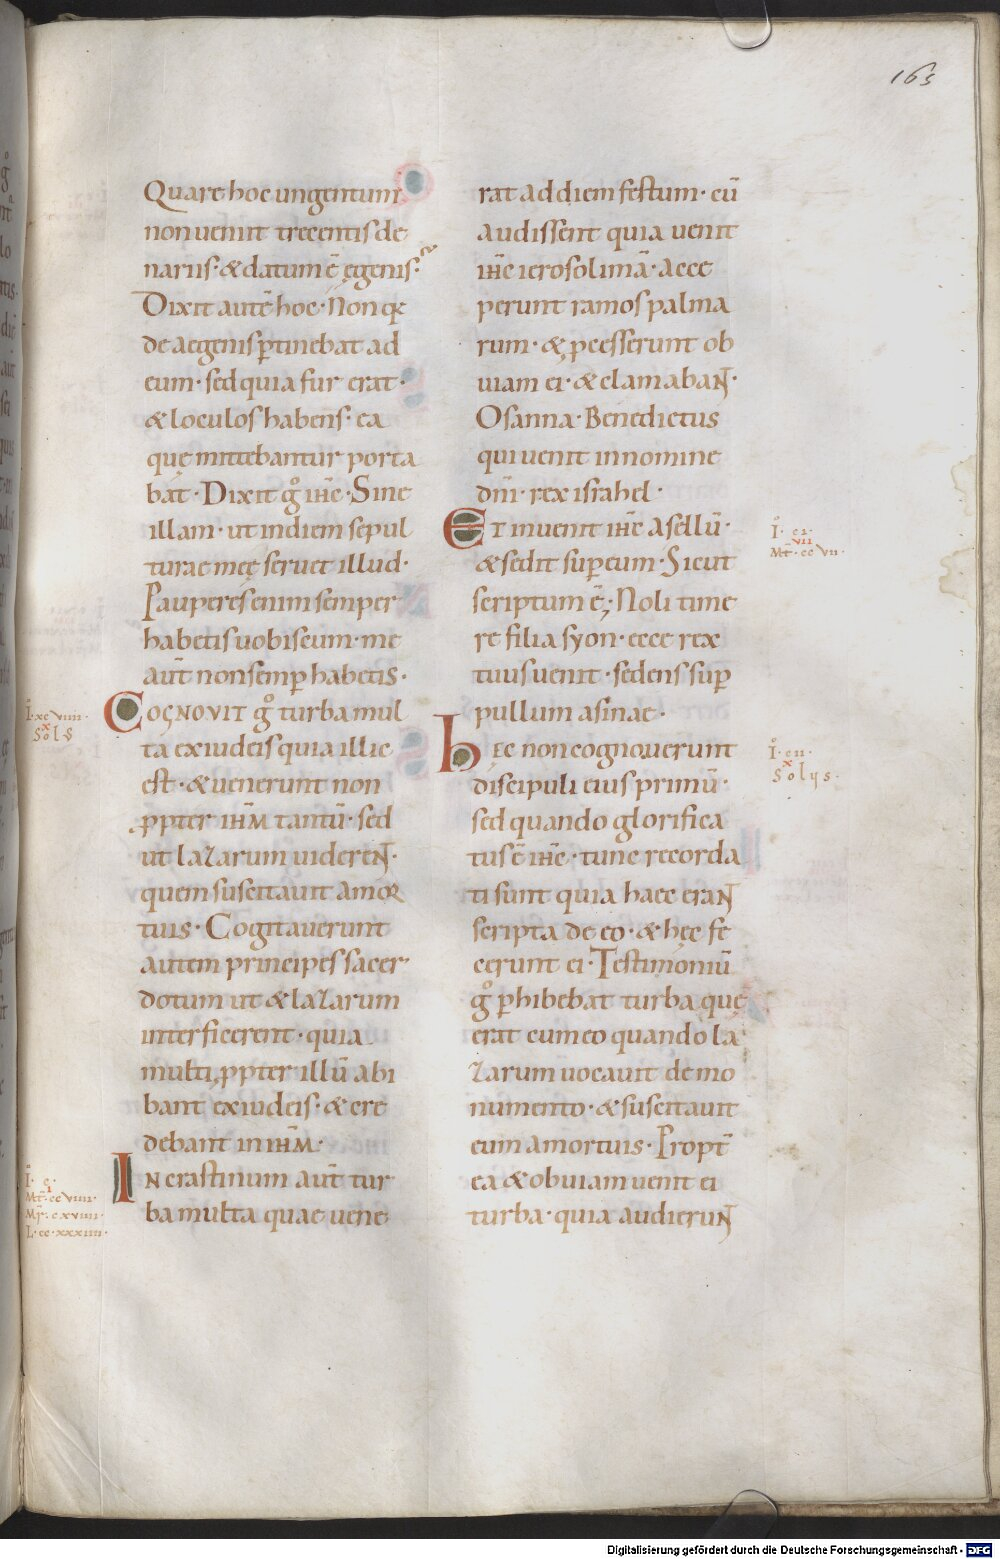 163
Quare hoc ungentum
non ueniit trecentis de
nariis· & datum ē ęgenis·
Dixit autē hoc· Non q̄
de aegenis ꝑtinebat ad
eum· sed quia fur erat·
& loculos habens· ea
quę mittebantur porta
bat· Dixit g̊ ihc̄· Sine
illam· ut in diem sepul
turae meę seruet illud·
Pauperes enim semper
habetis uobiscum· me
aut̄ non semꝑ habetis·
Cognovit g̊ turba mul
ta ex iudeis quia illic
est· & uenerunt non
ꝓpter ihm̄ tantū· sed
ut lazarum uiderent·
quem suscitauit a mor
tuis· Cogitauerunt
autem principes sacer
dotum ut & lazarum
interficerent· quia
multi ꝓpter illū abi
bant ex iudeis· & cre
debant in ihm̄·
In crastinum aut̄ tur
ba multa quae uene
rat ad diem festum· cū
audissent quia uenit
ihc̄ ierosolimā· acce
perunt ramos palma
rum· & ꝓcesserunt ob
uiam ei· & clamabant·
Osanna· Benedictus
qui uenit in nomine
dnī· rex israhel·
Et inuenit ihc̄ asellū·
& sedit suꝑ eum· Sicut
scriptum ē; Noli time
re filia syon· ecce rex
tuus uenit· sedens suꝑ
pullum asinae·
Hęc non cognouerunt
discipuli eius primū·
sed quando glorifica
tus ē ihc̄· tunc recorda
ti sunt quia haec erant
scripta de eo· & hęc fe
cerunt ei· Testimoniū
g̊ ꝑhibebat turba quę
erat cum eo quando la
zarum uocauit de mo
numento· & suscitauit
eum a mortuis· Propt̄
ea & obuiam uenit ei
turba· quia audierunt
I· xc viiii·
x
Sols
I· c·
i
Mt̄· cc viiii·
Mr̄· cxviiii·
L· cc· xxxiiii·
I· ci·
vii
Mt̄· cc vii·
I· cii·
x
Solys·
Digitalisierung gefördert durch die Deutsche Forschungsgemeinschaft - DFG